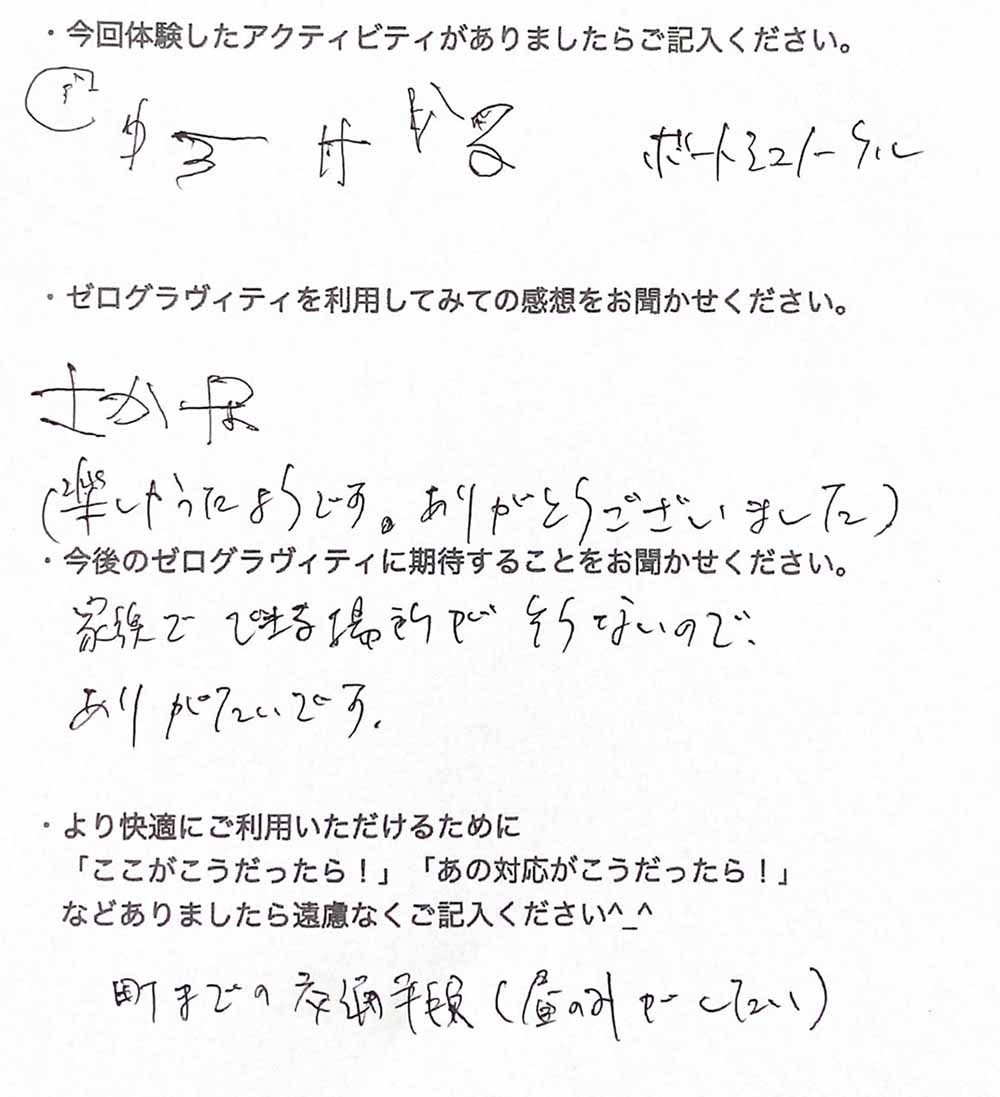 ・今回体験したアクティビティがありましたらご記入ください。
ボートシュノーケル
・ゼログラヴィティを利用してみての感想をお聞かせください。
さかな
(楽しかったようです。ありがとうございました)
・今後のゼログラヴィティに期待することをお聞かせください。
家族で できる場所が そうそうないので、
ありがたいです。
・より快適にご利用いただけるために
「ここがこうだったら！」「あの対応がこうだったら！」
などありましたら遠慮なくご記入ください^_^
町までの交通手段(昼のみがしたい)